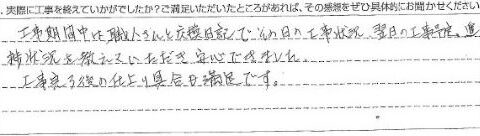 実際に工事を終えていかがでしたか?ご満足いただいたところがあれば、その感想をぜひ具体的にお聞かせください
工事期間中は職人さんと応援日記でその日の工事状況、翌日の工事予定、進
捗状況を教えていただき安心できました。
工事完了後の仕上り具合も満足です。